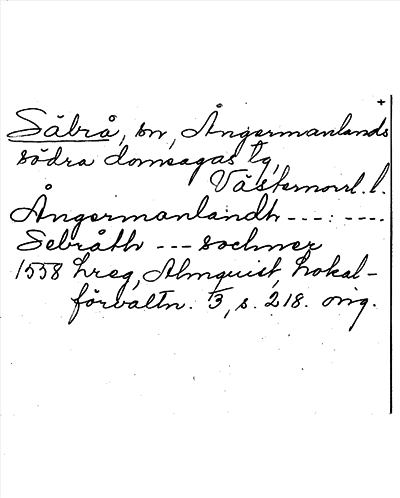 +
Säbrå, sn, Ångermanlands
södra domsagas tg,
Västernorrl. l.
Ångermanlandh ---:----
Sebråth --- sochner
1558 hreg, Almquist, Lokal-
förvaltn. 3, s. 218. orig.